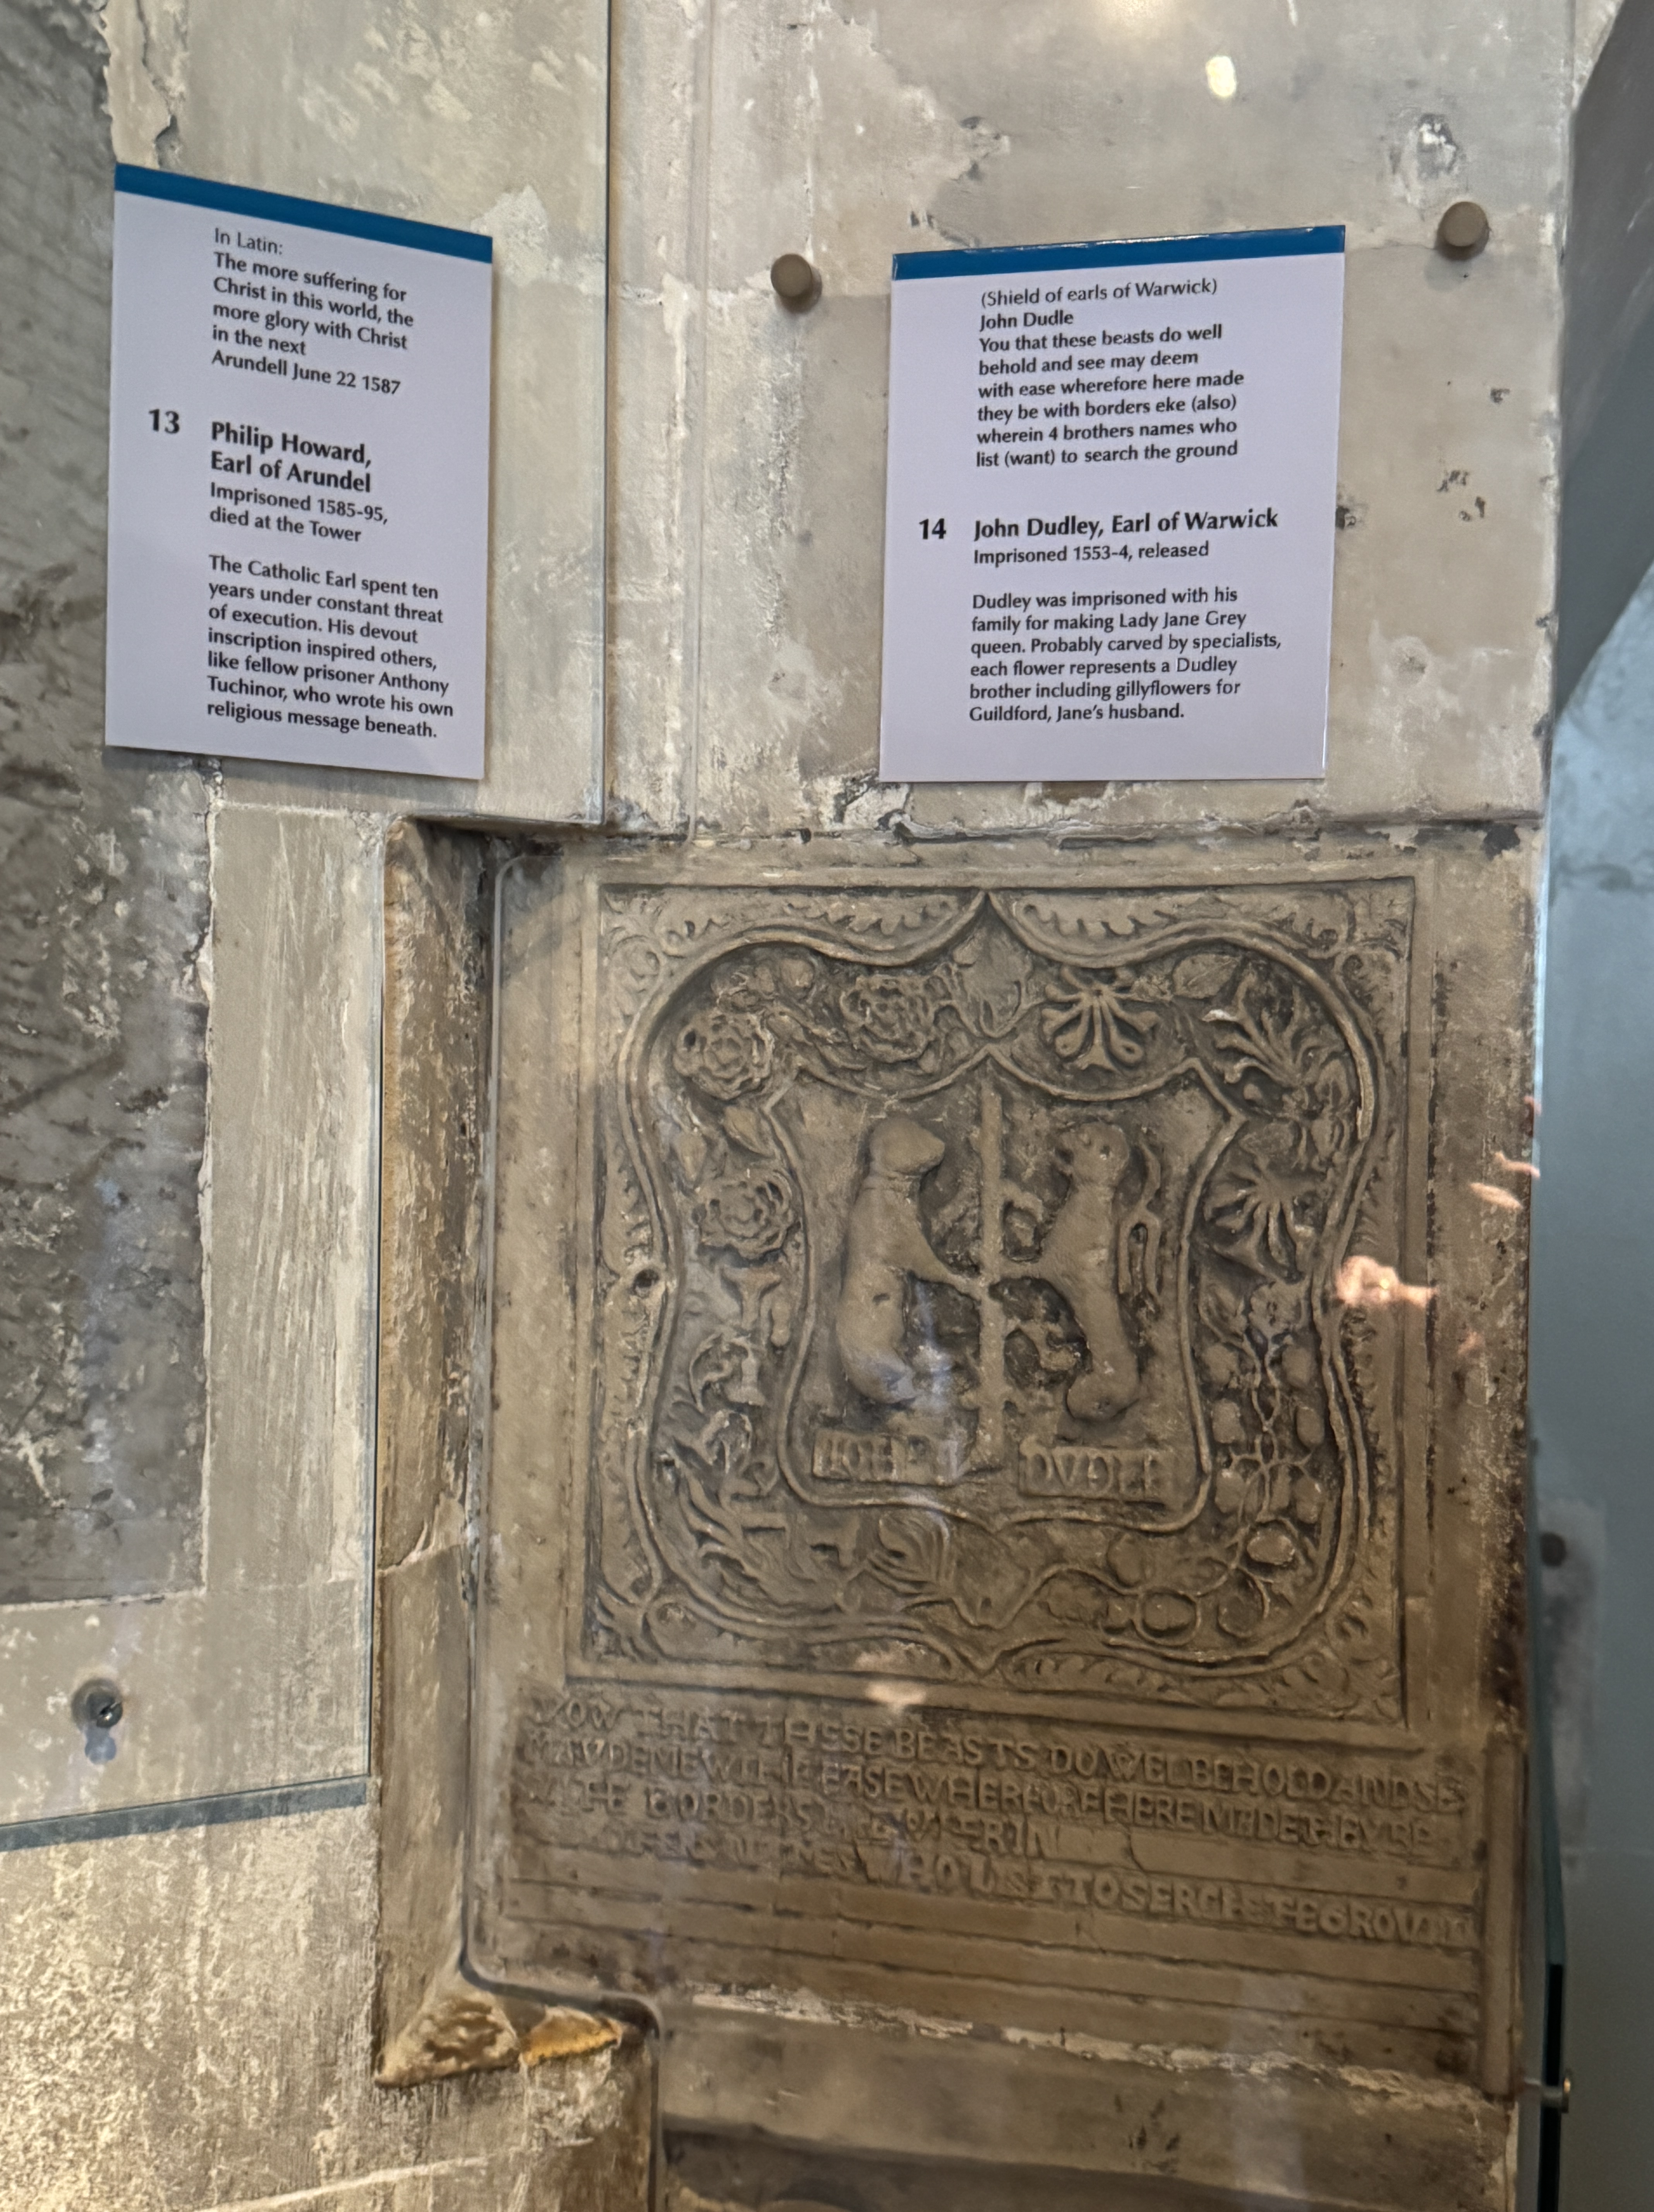 In Latin:
The more suffering for
Christ in this world, the
more glory with Christ
in the next
Arundell June 22 1587
13 Philip Howard,
Earl of Arundel
Imprisoned 1585-95,
died at the Tower
The Catholic Earl spent ten
years under constant threat
of execution. His devout
inscription inspired others,
like fellow prisoner Anthony
Tuchinor, who wrote his own
religious message beneath.
(Shield of earls of Warwick)
John Dudle
You that these beasts do well
behold and see may deem
with ease wherefore here made
they be with borders eke (also)
wherein 4 brothers names who
list (want) to search the ground
14 John Dudley, Earl of Warwick
Imprisoned 1553-4, released
Dudley was imprisoned with his
family for making Lady Jane Grey
queen. Probably carved by specialists,
each flower represents a Dudley
brother including gillyflowers for
Guildford, Jane's husband.
DVDLE
YOW THAT THSSE BEASTS DO WEL BEHOLD AND SE
EASE WHEREFORE HERE MADE THEY BE
BORDERS
WHO LIST TO SERCH THE GROVND